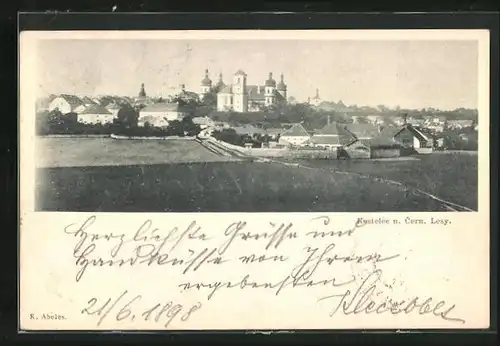 Kostelec n. Čern. Lesy.
Herzlichste Grüsse und
Handküsse von Ihrem
ergebensten
21/6 1898
K. Abeles.